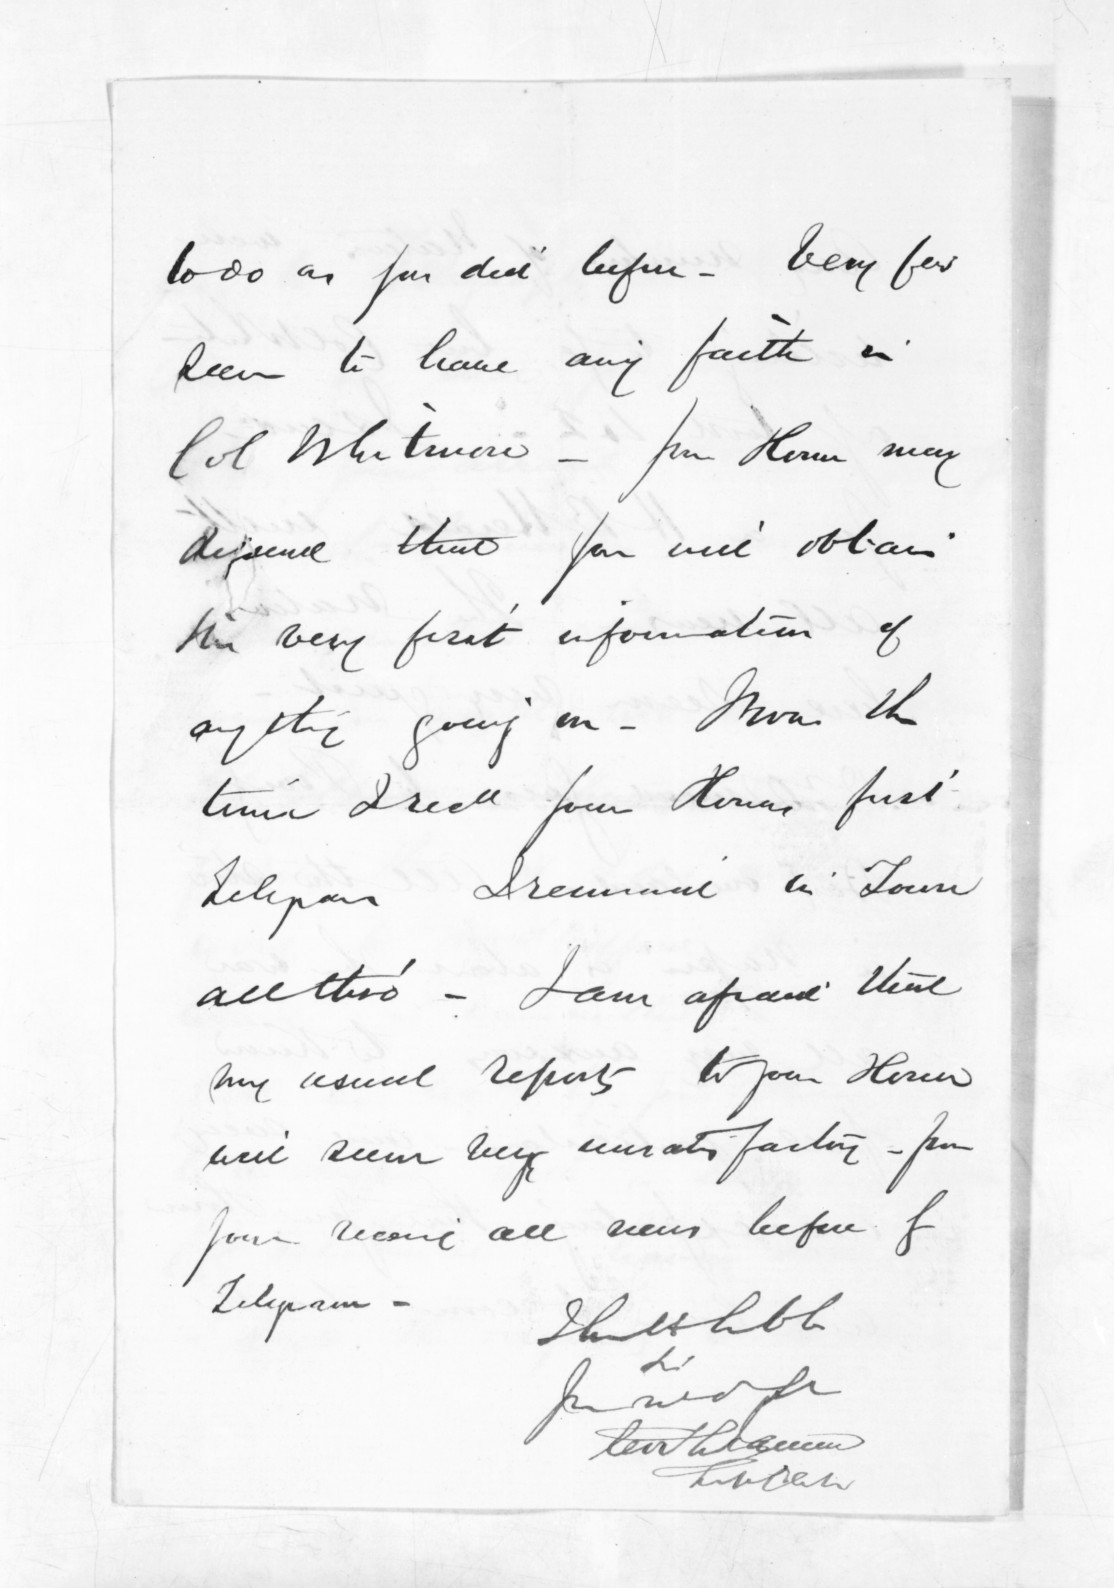 to do as you did before - Very few
seem to have any faith in
Col Whitmore - your Honor may
depend that you will obtain
the very first information of
anything going on - From the
time I recd your Honors first
Telegram I remained in Town
all tho' - I am afraid that
my usual reports to your Honor
will seem very unsatisfactory - from
your receiving all news before by
Telegram -
I have the honor to be
Sir